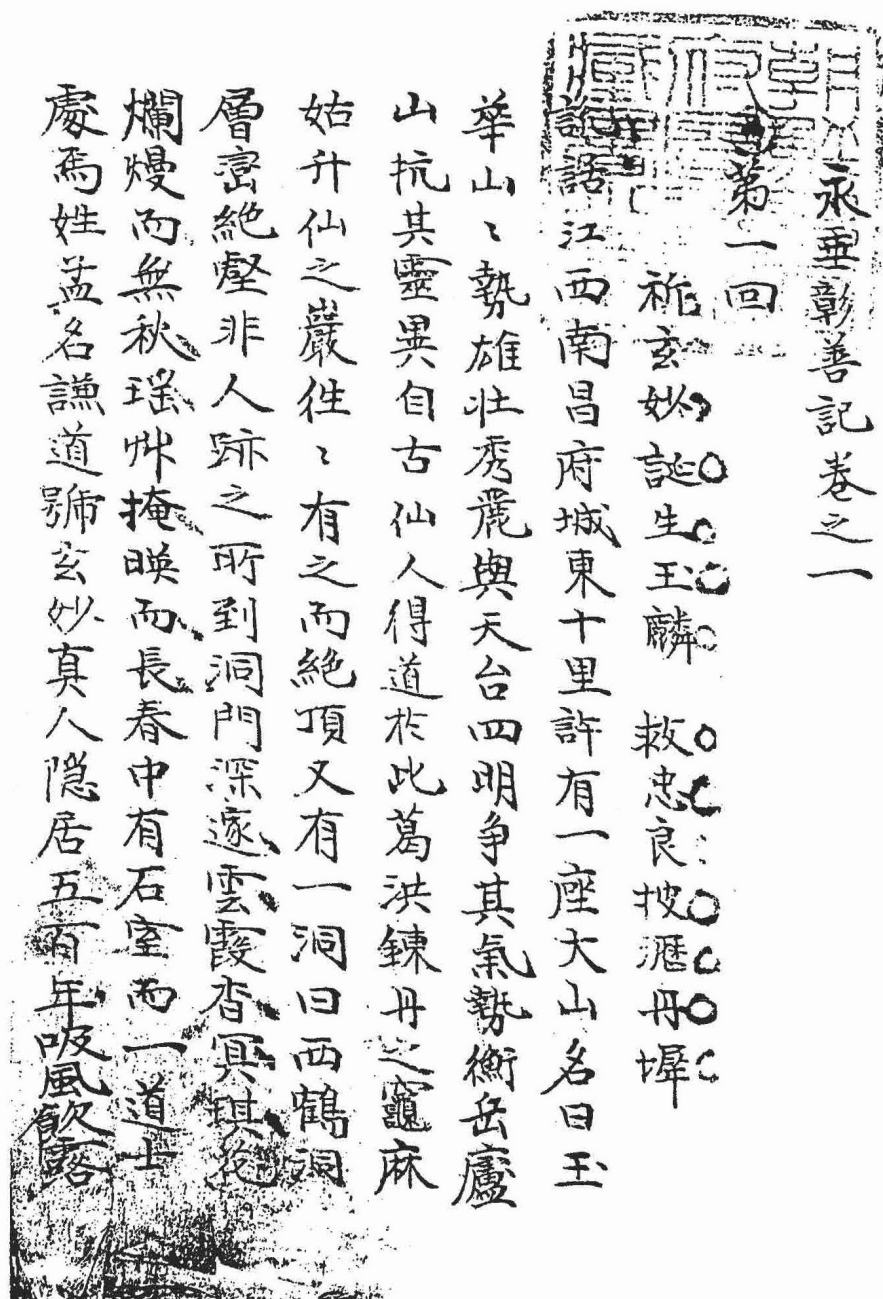 永垂彰善記卷之一
第一回
祈玄妙誕生玉麟　救忠良披瀝丹墀
話江西南昌府城東十里許有一座大山名曰玉
華山〻勢雄壯秀麗與天台四明争其氣勢衡岳廬
山抗其靈異自古仙人得道於此葛洪鍊丹之竈麻
姑升仙之巖徃〻有之而絶頂又有一洞曰西鶴洞
層峦絶壑非人跡之所到洞門深邃雲霞杳冥琪花
爛熳而無秋瑶艸掩暎而長春中有石室而一道士
處焉姓孟名謙道號玄妙真人隠居五百年吸風飮露